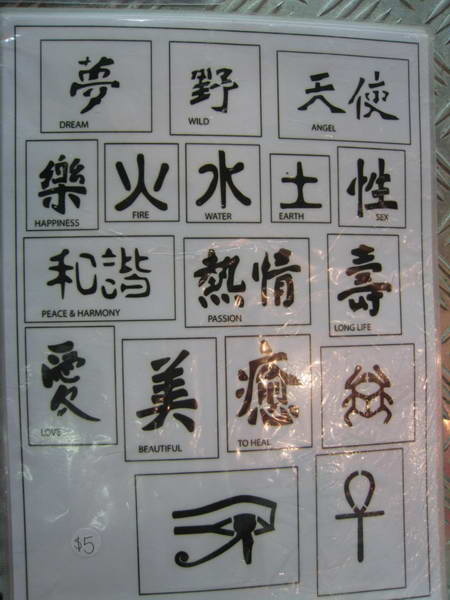 夢
DREAM
野
WILD
天使
ANGEL
樂
HAPPINESS
火
FIRE
水
WATER
土
EARTH
性
SEX
和諧
PEACE & HARMONY
熱情
PASSION
壽
LONG LIFE
愛
LOVE
美
BEAUTIFUL
癒
TO HEAL
$5